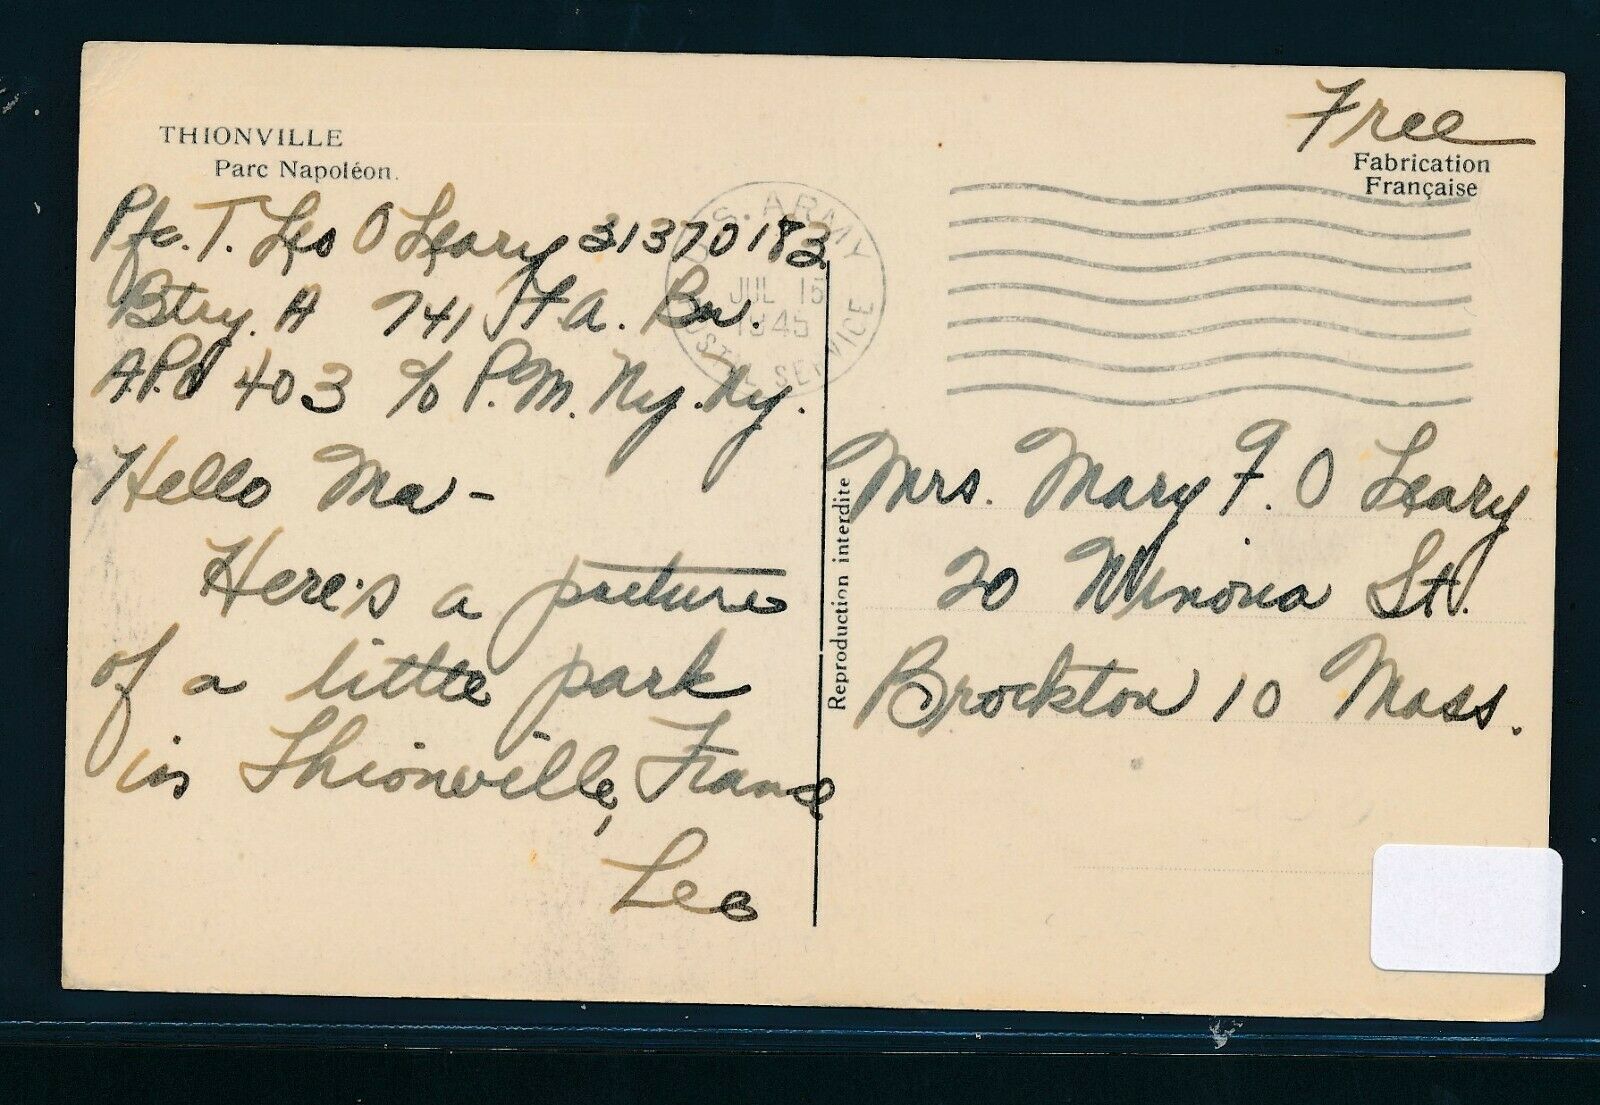 THIONVILLE
Parc Napoléon.
Pfc. T. Leo O Leary 31370183
Btry. A 741 F.A. Bn.
A.P.O 403 c/o P.M. Ny. Ny.
Hello Ma -
Here's a picture
of a little park
in Thionville, France
Leo
U.S. ARMY
JUL 15
1945
POSTAL SERVICE
Reproduction interdite
Free
Fabrication
Française
Mrs. Mary F. O Leary
20 Winona St.
Brockton 10 Mass.